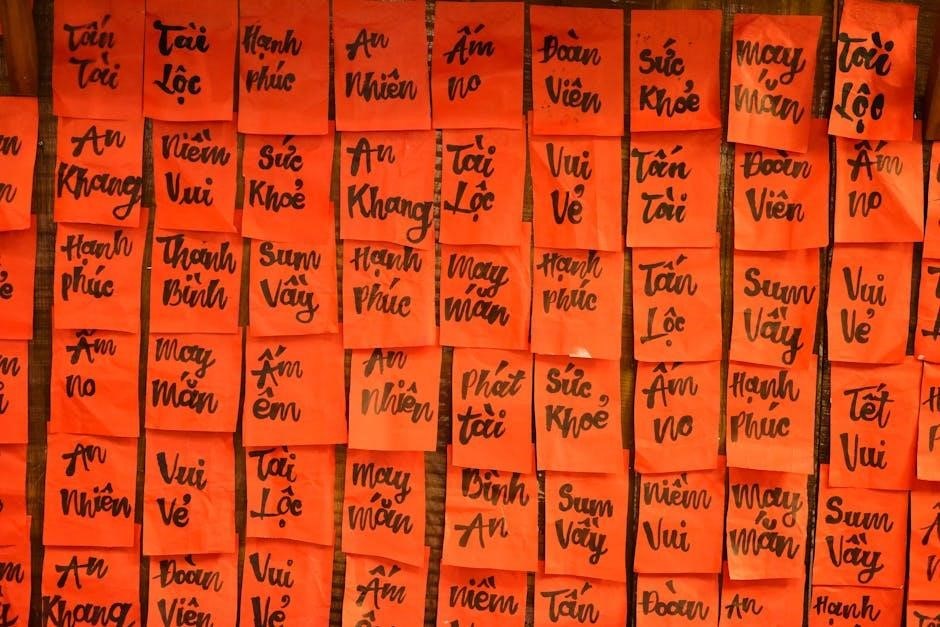 Tấn
Tài
Tài
Lộc
Hạnh
phúc
An
Nhiên
Ấm
no
Đoàn
Viên
Sức
Khoẻ
May
Mắn
Tài
Lộc
An
Khang
Niềm
Vui
Sức
Khoẻ
An
Khang
Tài
Lộc
Vui
Vẻ
Tấn
Tài
Đoàn
Viên
Ấm
no
Hạnh
phúc
Thanh
Bình
Sum
Vầy
Hạnh
Phúc
May
mắn
Hạnh
phúc
Tấn
Lộc
Sum
Vầy
Vui
Vẻ
Ấm
no
May
Mắn
Ấm
êm
An
nhiên
Phát
tài
Sức
Khoẻ
Ấm
no
Hạnh
Phúc
Tết
Vui
An
Nhiên
Vui
Vẻ
Tài
Lộc
May
Mắn
Bình
An
Sum
Vầy
Niềm
Vui
May
Mắn
Sum
Vầy
An
Khang
Đoàn
Viên
Vui
Vẻ
Ấm
niềm
Tấn
Đoàn
An
Hạnh